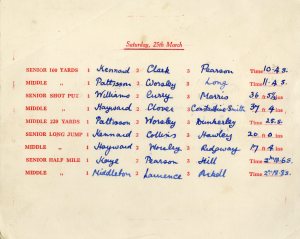 Saturday, 25th March
SENIOR 100 YARDS 1 Kennard 2 Clark 3 Pearson Time 10.4 S.
MIDDLE " 1 Pattisson 2 Worsley 3 Long Time 11.4 S.
SENIOR SHOT PUT 1 Williams 2 Curry 3 Morris 36 ft 5½ ins
MIDDLE " 1 Hayward 2 Clover 3 Smith 37 ft 4 ins
MIDDLE 220 YARDS 1 Pattisson 2 Worsley 3 Dunkerley Time 25.6
SENIOR LONG JUMP 1 Kennard 2 Collins 3 Hawley 20 ft 0 ins
MIDDLE " 1 Hayward 2 Worsley 3 Ridgway 17 ft 4 ins
SENIOR HALF MILE 1 Kaye 2 Pearson 3 Hill Time
MIDDLE " 1 Middleton 2 Lawrence 3 Askell Time